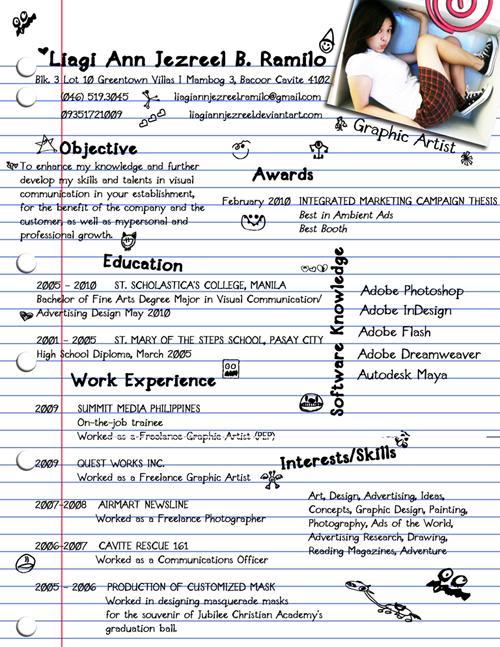 Liagi Ann Jezreel B. Ramilo
Blk. 3 Lot 10 Greentown Villas 1 Mambog 3, Bacoor Cavite 4102
(046) 519.3045 liagiannjezreelramilo@gmail.com
09351721009 liagiannjezreel.deviantart.com
Graphic Artist
Objective
To enhance my knowledge and further
develop my skills and talents in visual
communication in your establishment,
for the benefit of the company and the
customer, as well as mypersonal and
professional growth.
Awards
February 2010 INTEGRATED MARKETING CAMPAIGN THESIS
Best in Ambient Ads
Best Booth
Education
2005 - 2010 ST. SCHOLASTICA'S COLLEGE, MANILA
Bachelor of Fine Arts Degree Major in Visual Communication/
Advertising Design May 2010
2001 - 2005 ST. MARY OF THE STEPS SCHOOL, PASAY CITY
High School Diploma, March 2005
Software Knowledge
Adobe Photoshop
Adobe InDesign
Adobe Flash
Adobe Dreamweaver
Autodesk Maya
Work Experience
2009 SUMMIT MEDIA PHILIPPINES
On-the-job trainee
Worked as a Freelance Graphic Artist (PEP)
2009 QUEST WORKS INC.
Worked as a Freelance Graphic Artist
2007-2008 AIRMART NEWSLINE
Worked as a Freelance Photographer
2006-2007 CAVITE RESCUE 161
Worked as a Communications Officer
2005 - 2006 PRODUCTION OF CUSTOMIZED MASK
Worked in designing masquerade masks
for the souvenir of Jubilee Christian Academy's
graduation ball.
Interests/Skills
Art, Design, Advertising, Ideas,
Concepts, Graphic Design, Painting,
Photography, Ads of the World,
Advertising Research, Drawing,
Reading Magazines, Adventure